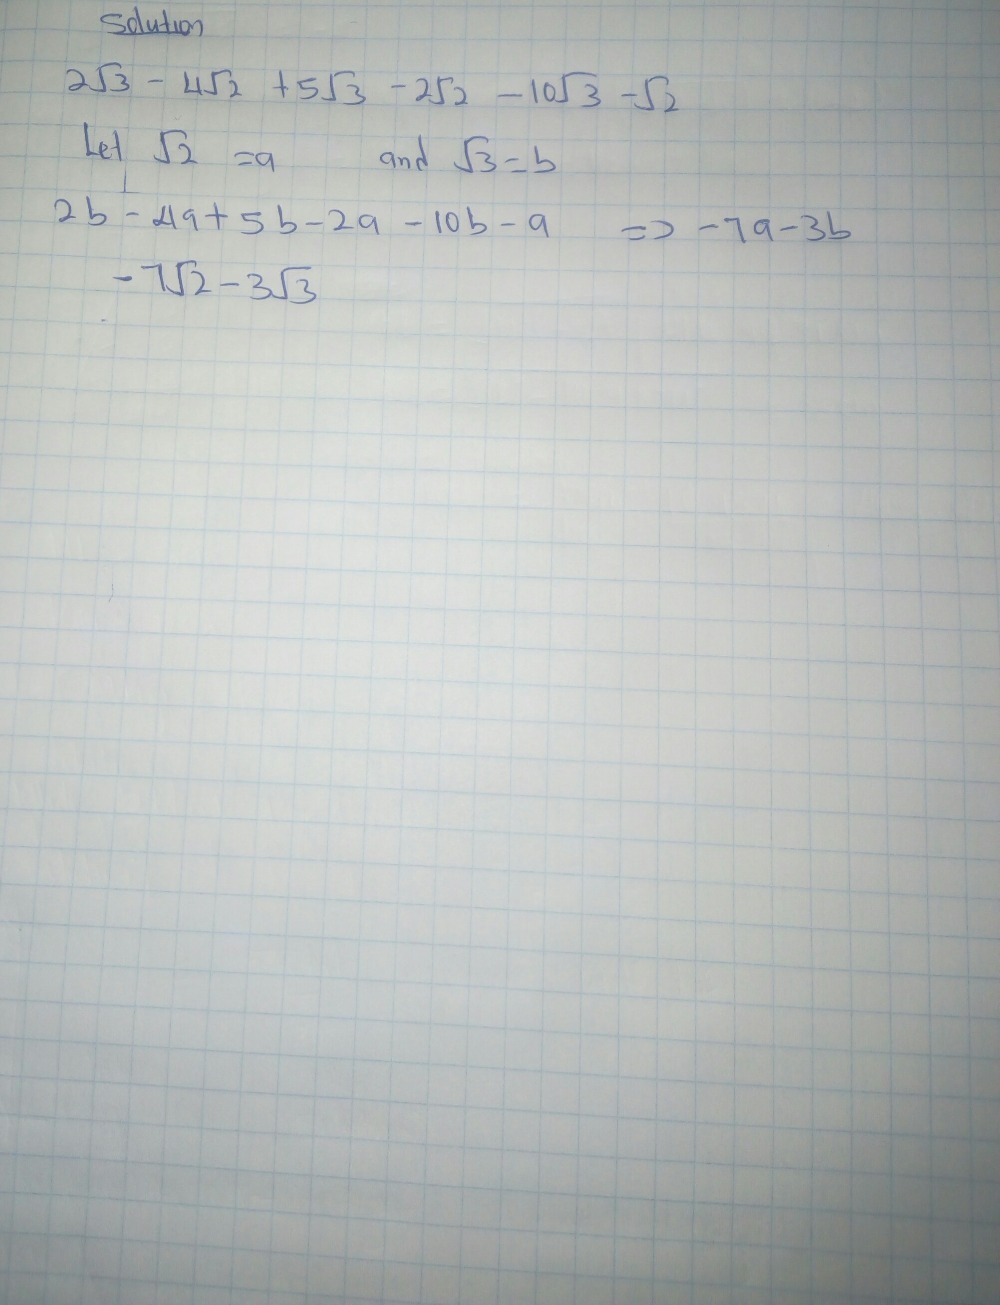 Solution
2√3 - 4√2 + 5√3 - 2√2 - 10√3 - √2
Let √2 = a and √3 = b
2b - 4a + 5b - 2a - 10b - a => -7a - 3b
- 7√2 - 3√3